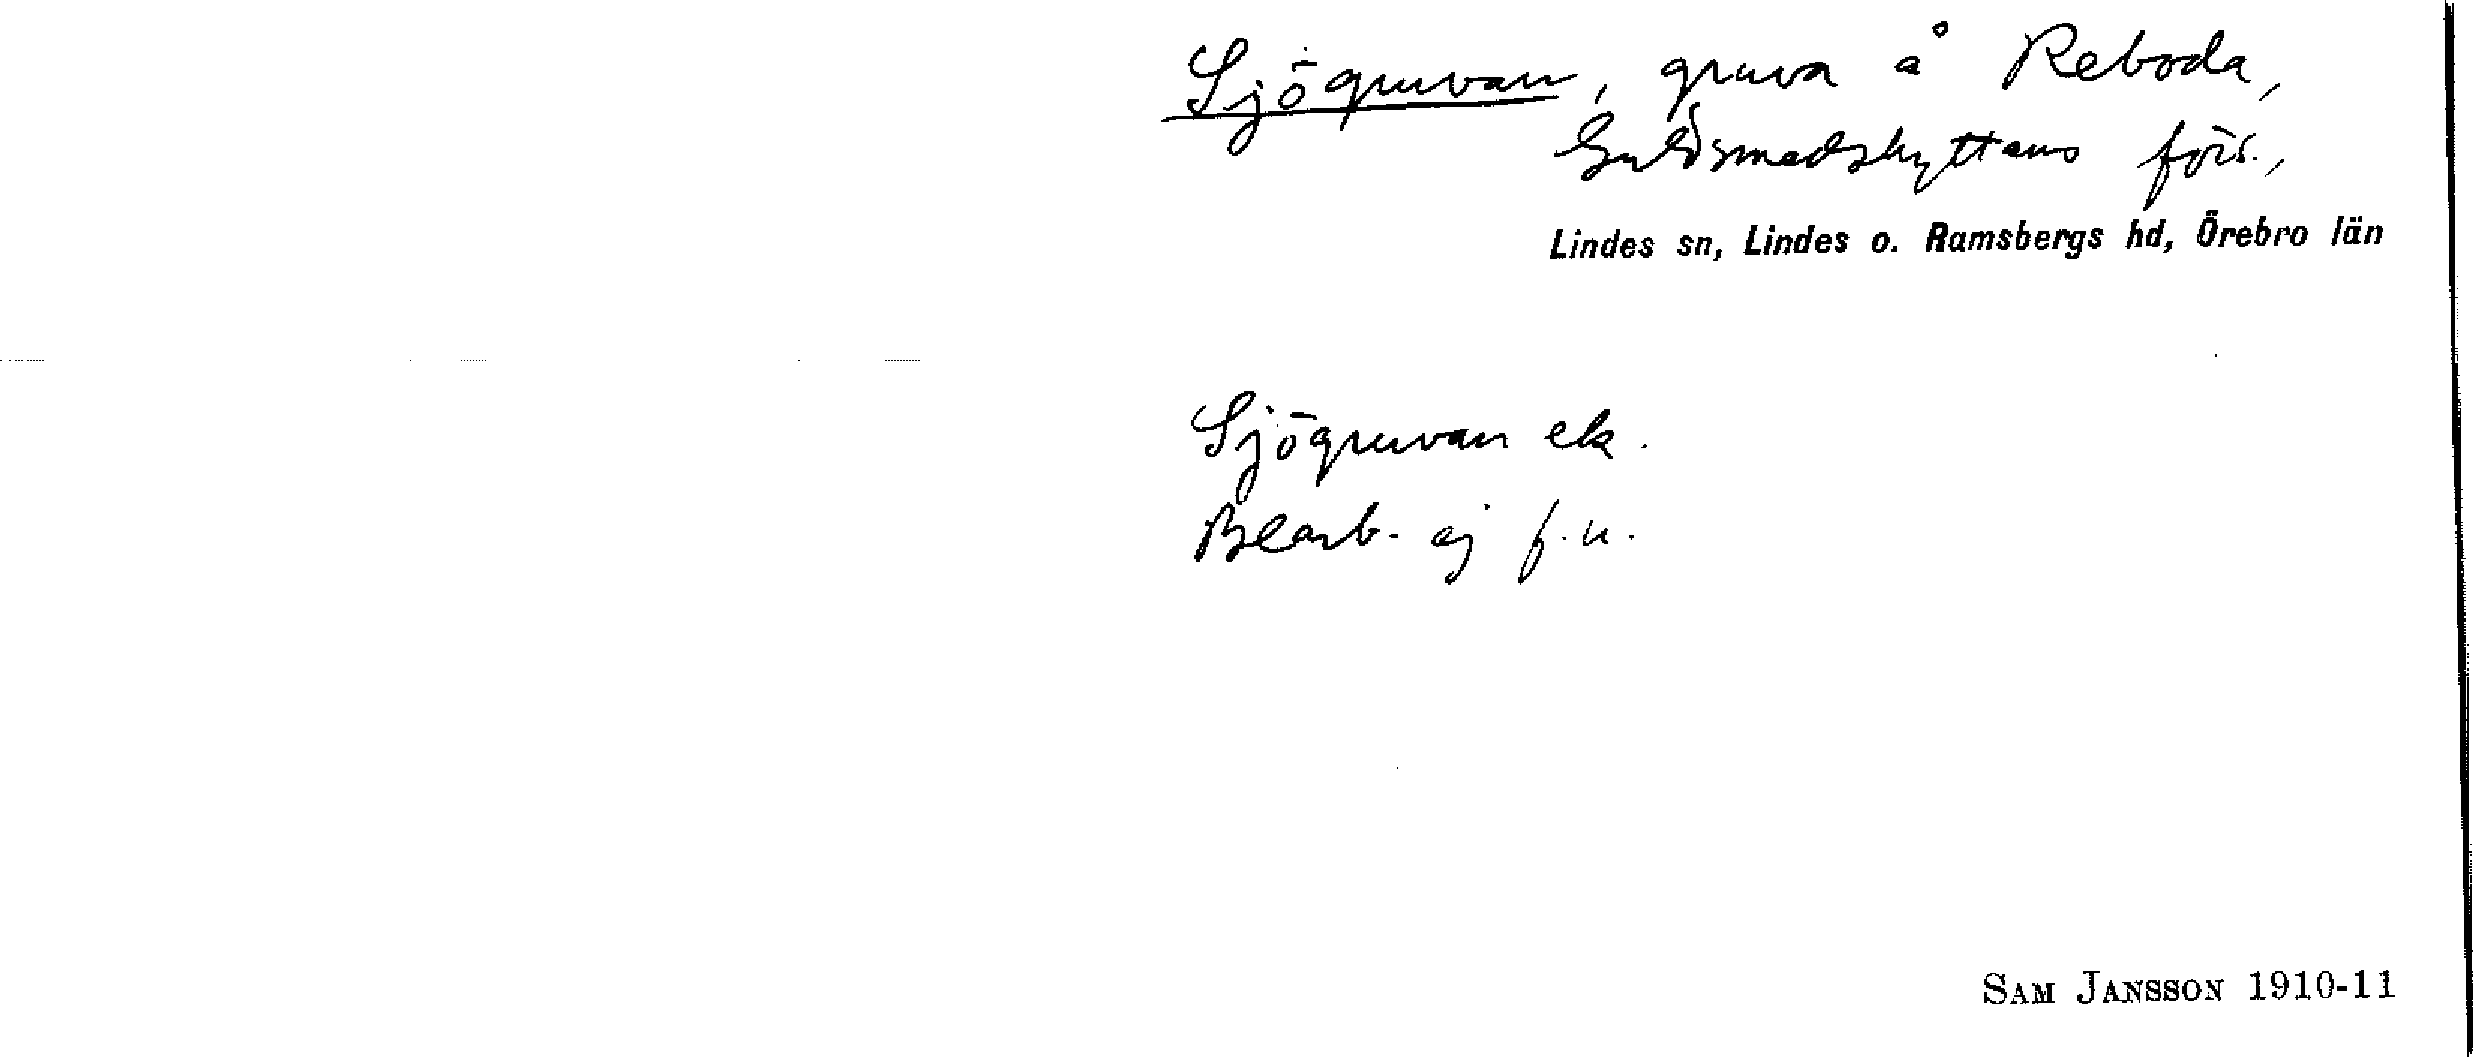 Sjögruvan, gruva å Reboda,
Guldsmedshyttans förs.,
Lindes sn, Lindes o. Ramsbergs hd, Örebro län
Sjögruvan ek.
Bearb. ej f.n.
SAM JANSSON 1910-11